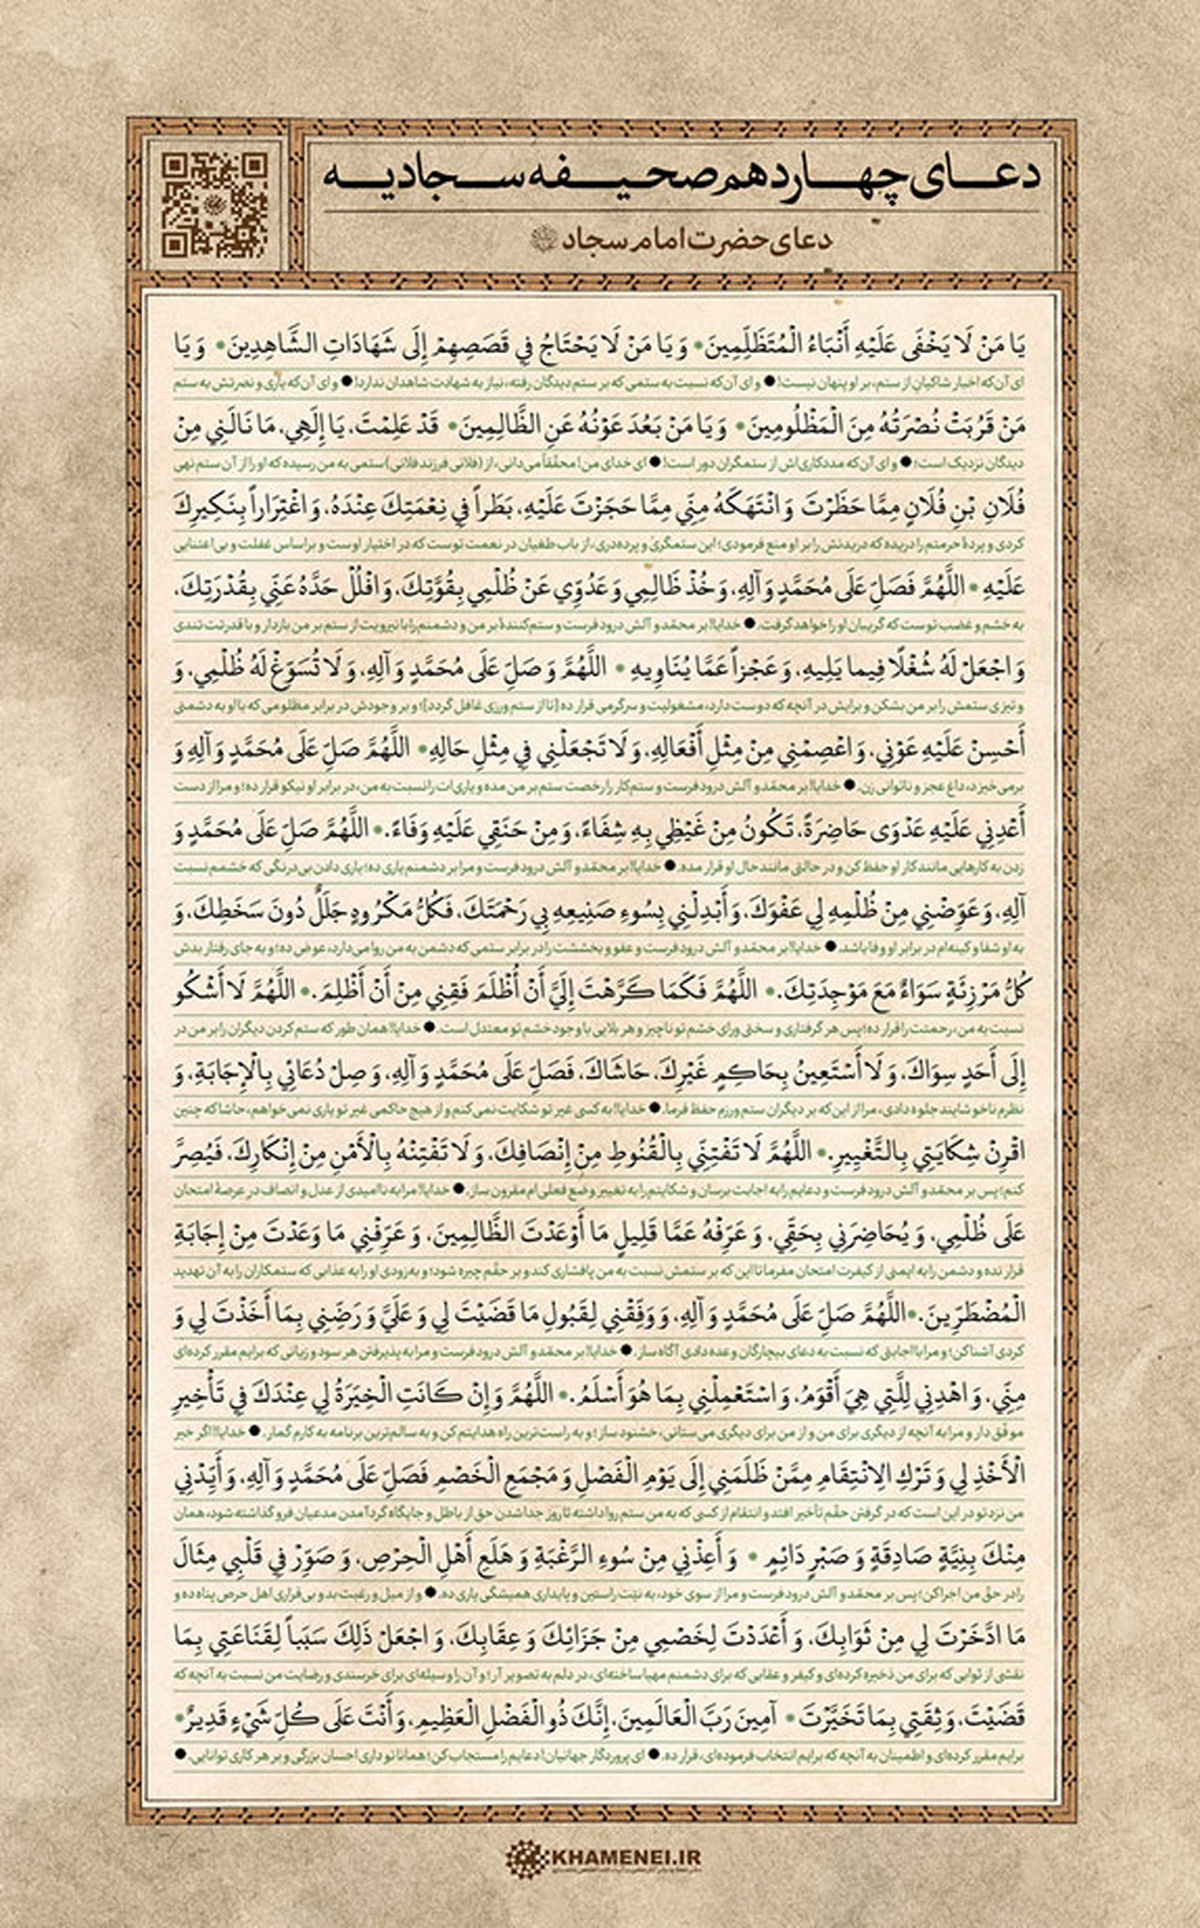 دعای چهاردهم صحیفه سجادیه
دعای حضرت امام سجاد
يَا مَنْ لَا يَخْفَى عَلَيْهِ أَنْبَاءُ الْمُتَظَلِّمِينَ • وَ يَا مَنْ لَا يَحْتَاجُ فِي قَصَصِهِمْ إِلَى شَهَادَاتِ الشَّاهِدِينَ • وَ يَا
ای آن‌که اخبار شاکیان از ستم، بر او پنهان نیست! ● و ای آن‌که نسبت به ستمی که بر ستم دیدگان رفته، نیاز به شهادت شاهدان ندارد! ● و ای آن‌که یاری و نصرتش به ستم
مَنْ قَرُبَتْ نُصْرَتُهُ مِنَ الْمَظْلُومِينَ • وَ يَا مَنْ بَعُدَ عَوْنُهُ عَنِ الظَّالِمِينَ • قَدْ عَلِمْتَ، يَا إِلَهِي، مَا نَالَنِي مِنْ
دیدگان نزدیک است؛ ● و ای آن‌که مددکاری‌اش از ستمگران دور است! ● ای خدای من! محققاً می‌دانی، از (فلانی فرزند فلانی) ستمی به من رسیده که او را از آن ستم نهی
فُلَانِ بْنِ فُلَانٍ مِمَّا حَظَرْتَ وَ انْتَهَكَهُ مِنِّي مِمَّا حَجَزْتَ عَلَيْهِ، بَطَراً فِي نِعْمَتِكَ عِنْدَهُ، وَ اغْتِرَاراً بِنَكِيرِكَ
کردی و پردهٔ حرمتم را دریده که دریدنش را بر او منع فرمودی؛ این ستمگری و پرده‌دری، از باب طغیان در نعمت توست که در اختیار اوست و براساس غفلت و بی‌اعتنایی
عَلَيْهِ • اللَّهُمَّ فَصَلِّ عَلَى مُحَمَّدٍ وَ آلِهِ، وَ خُذْ ظَالِمِي وَ عَدُوِّي عَنْ ظُلْمِي بِقُوَّتِكَ، وَ افْلُلْ حَدَّهُ عَنِّي بِقُدْرَتِكَ،
به خشم و غضب توست که گریبان او را خواهد گرفت. ● خدایا! بر محمّد و آلش درود فرست و ستم‌کنندهٔ بر من و دشمنم را با نیرویت از ستم بر من بازدار و با قدرتت تندی
وَ اجْعَلْ لَهُ شُغْلًا فِيما يَلِيهِ، وَ عَجْزاً عَمَّا يُنَاوِيهِ • اللَّهُمَّ وَ صَلِّ عَلَى مُحَمَّدٍ وَ آلِهِ، وَ لَا تُسَوِّغْ لَهُ ظُلْمِي، وَ
و تیزی ستمش را بر من بشکن و برایش در آنچه که دوست دارد، مشغولیت و سرگرمی قرار ده [تا از ستم ورزی غافل گردد]؛ و بر وجودش در برابر مظلومی که با او به دشمنی
أَحْسِنْ عَلَيْهِ عَوْنِي، وَ اعْصِمْنِي مِنْ مِثْلِ أَفْعَالِهِ، وَ لَا تَجْعَلْنِي فِي مِثْلِ حَالِهِ • اللَّهُمَّ صَلِّ عَلَى مُحَمَّدٍ وَ آلِهِ وَ
برمی‌خیزد، داغ عجز و ناتوانی زن. ● خدایا! بر محمّد و آلش درود فرست و ستم‌کار را رخصت ستم بر من مده و یاری‌ات را نسبت به من، در برابر او نیکو قرار ده؛ و مرا از دست
أَعْدِنِي عَلَيْهِ عَدْوَى حَاضِرَةً، تَكُونُ مِنْ غَيْظِي بِهِ شِفَاءً، وَ مِنْ حَنَقِي عَلَيْهِ وَفَاءً. • اللَّهُمَّ صَلِّ عَلَى مُحَمَّدٍ وَ
زدن به کارهایی مانند کار او حفظ کن و در حالتی مانند حال او قرار مده. ● خدایا! بر محمّد و آلش درود فرست و مرا بر دشمنم یاری ده؛ یاری دادن بی‌درنگی که خشمم نسبت
آلِهِ، وَ عَوِّضْنِي مِنْ ظُلْمِهِ لِي عَفْوَكَ، وَ أَبْدِلْنِي بِسُوءِ صَنِيعِهِ بِي رَحْمَتَكَ، فَكُلُّ مَكْرُوهٍ جَلَلٌ دُونَ سَخَطِكَ، وَ
به او شفا و کینه‌ام در برابر او وفا باشد. ● خدایا! بر محمّد و آلش درود فرست و عفو و بخششت را در برابر ستمی که دشمن به من روا می‌دارد، عوض ده؛ و به جای رفتار بدش
كُلُّ مَرْزِئَةٍ سَوَاءٌ مَعَ مَوْجِدَتِكَ. • اللَّهُمَّ فَكَمَا كَرَّهْتَ إِلَيَّ أَنْ أُظْلَمَ فَقِنِي مِنْ أَنْ أَظْلِمَ. • اللَّهُمَّ لَا أَشْكُو
نسبت به من، رحمتت را قرار ده؛ پس هر گرفتاری و سختی ورای خشم تو ناچیز و هر بلایی با وجود خشم تو معتدل است. ● خدایا! همان طور که ستم کردن دیگران را بر من در
إِلَى أَحَدٍ سِوَاكَ، وَ لَا أَسْتَعِينُ بِحَاكِمٍ غَيْرِكَ، حَاشَاكَ، فَصَلِّ عَلَى مُحَمَّدٍ وَ آلِهِ، وَ صِلْ دُعَائِي بِالْإِجَابَةِ، وَ
نظرم ناخوشایند جلوه دادی، مرا از این که بر دیگران ستم ورزم حفظ فرما. ● خدایا! به کسی غیر تو شکایت نمی‌کنم و از هیچ حاکمی غیر تو یاری نمی‌خواهم، حاشا که چنین
اقْرِنْ شِكَايَتِي بِالتَّغْيِيرِ. • اللَّهُمَّ لَا تَفْتِنِّي بِالْقُنُوطِ مِنْ إِنْصَافِكَ، وَ لَا تَفْتِنْهُ بِالْأَمْنِ مِنْ إِنْكَارِكَ، فَيُصِرَّ
کنم؛ پس بر محمّد و آلش درود فرست و دعایم را به اجابت برسان و شکایتم را به تغییر وضع فعلی ام مقرون ساز. ● خدایا! مرا به ناامیدی از عدل و انصاف در عرصهٔ امتحان
عَلَى ظُلْمِي، وَ يُحَاضِرَنِي بِحَقِّي، وَ عَرِّفْهُ عَمَّا قَلِيلٍ مَا أَوْعَدْتَ الظَّالِمِينَ، وَ عَرِّفْنِي مَا وَعَدْتَ مِنْ إِجَابَةِ
قرار نده و دشمن را به ایمنی از کیفرت امتحان مفرما تا این که بر ستمش نسبت به من پافشاری کند و بر حقّم چیره شود؛ و به‌زودی او را به عذابی که ستمکاران را به آن تهدید
الْمُضْطَرِّينَ. • اللَّهُمَّ صَلِّ عَلَى مُحَمَّدٍ وَ آلِهِ، وَ وَفِّقْنِي لِقَبُولِ مَا قَضَيْتَ لِي وَ عَلَيَّ وَ رَضِّنِي بِمَا أَخَذْتَ لِي وَ
کردی آشنا کن؛ و مرا با اجابتی که نسبت به دعای بیچارگان وعده دادی آگاه ساز. ● خدایا! بر محمّد و آلش درود فرست و مرا به پذیرفتن هر سود و زیانی که برایم مقرر کرده‌ای
مِنِّي، وَ اهْدِنِي لِلَّتِي هِيَ أَقْوَمُ، وَ اسْتَعْمِلْنِي بِمَا هُوَ أَسْلَمُ. • اللَّهُمَّ وَ إِنْ كَانَتِ الْخِيَرَةُ لِي عِنْدَكَ فِي تَأْخِيرِ
موفّق دار و مرا به آنچه از دیگری برای من و از من برای دیگری می‌ستانی، خشنود ساز؛ و به راست‌ترین راه هدایتم کن و به سالم‌ترین برنامه به کارم گمار. ● خدایا! اگر خیر
الْأَخْذِ لِي وَ تَرْكِ الِانْتِقَامِ مِمَّنْ ظَلَمَنِي إِلَى يَوْمِ الْفَصْلِ وَ مَجْمَعِ الْخَصْمِ فَصَلِّ عَلَى مُحَمَّدٍ وَ آلِهِ، وَ أَيِّدْنِي
من نزد تو در این است که در گرفتن حقّم تأخیر افتد و انتقام از کسی که به من ستم روا داشته تا روز جدا شدن حق از باطل و جایگاه گرد آمدن مدعیان فرو گذاشته شود، همان
مِنْكَ بِنِيَّةٍ صَادِقَةٍ وَ صَبْرٍ دَائِمٍ • وَ أَعِذْنِي مِنْ سُوءِ الرَّغْبَةِ وَ هَلَعِ أَهْلِ الْحِرْصِ، وَ صَوِّرْ فِي قَلْبِي مِثَالَ
را در حق من اجرا کن؛ پس بر محمّد و آلش درود فرست و مرا از سوی خود، به نیّت راستین و پایداری همیشگی یاری ده. ● و از میل و رغبت بد و بی‌قراری اهل حرص پناه ده و
مَا ادَّخَرْتَ لِي مِنْ ثَوَابِكَ، وَ أَعْدَدْتَ لِخَصْمِي مِنْ جَزَائِكَ وَ عِقَابِكَ، وَ اجْعَلْ ذَلِكَ سَبَباً لِقَنَاعَتِي بِمَا
نقشی از ثوابی که برای من ذخیره کرده‌ای و کیفر و عقابی که برای دشمنم مهیا ساخته‌ای، در دلم به تصویر آر؛ و آن را وسیله‌ای برای خرسندی و رضایت من نسبت به آنچه که
قَضَيْتَ، وَ ثِقَتِي بِمَا تَخَيَّرْتَ • آمِينَ رَبَّ الْعَالَمِينَ، إِنَّكَ ذُو الْفَضْلِ الْعَظِيمِ، وَ أَنْتَ عَلَى كُلِّ شَيْءٍ قَدِيرٌ •
برایم مقرر کرده‌ای و اطمینان به آنچه که برایم انتخاب فرموده‌ای، قرار ده. ● ای پروردگار جهانیان! دعایم را مستجاب کن؛ همانا تو دارای احسان بزرگی و بر هر کاری توانایی. ●
KHAMENEI.IR